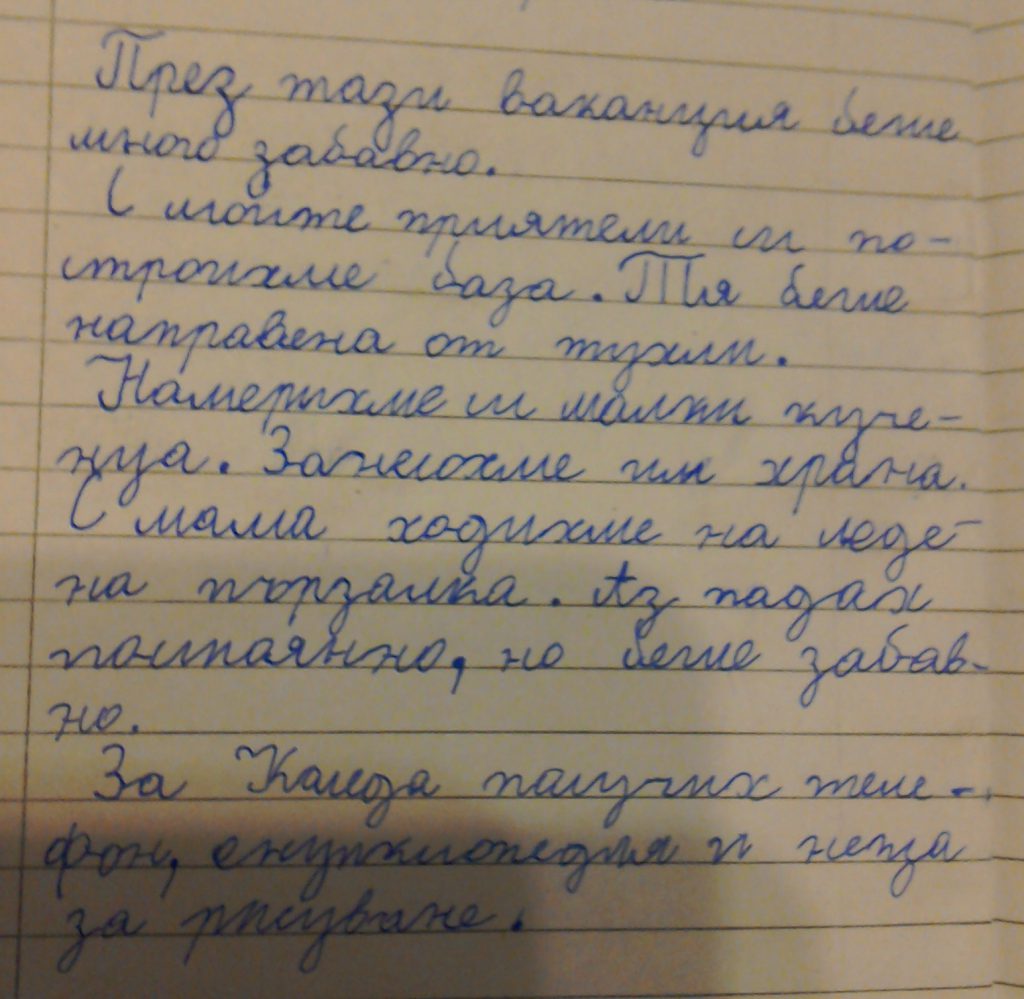 През тази ваканция беше
много забавно.
С моите приятели си по-
строихме база. Тя беше
направена от тухли.
Намерихме си малки куче-
нца. Занесохме им храна.
С мама ходихме на леде-
на пързалка. Аз падах
постоянно, но беше забав-
но.
За Коледа получих теле-
фон, енциклопедия и неща
за рисуване.